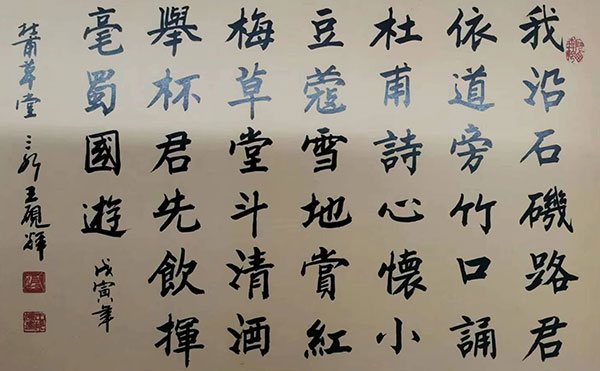 我沿石磯路君
依道旁竹口誦
杜甫詩心懷小
豆蔻雪地賞紅
梅草堂斗清酒
舉杯君先飲揮
毫蜀國遊 戊寅年
杜甫草堂 王硯輝